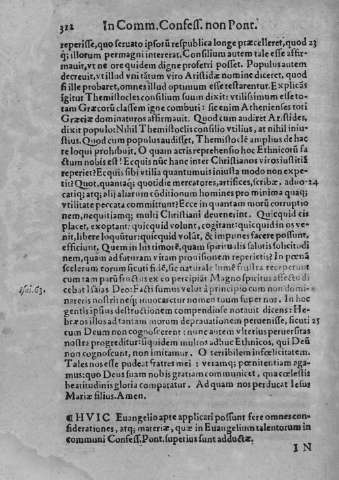 312 In Comm. Confess. non Pont.
reperisse, quo seruato ipsorũ respublica longe præcelleret, quod 23
q; illorum permagni intererat. Consilium autem tale esse affir-
mauit, vt ne ore quidem digne proferri posset. Populus autem
decreuit, vt illud vni tãtum viro Aristidæ nomine diceret, quod
si ille probaret, omnes illud optimum esse testarentur. Explicãs
igitur Themistocles consilium suum dixit: vtilissimum esse to-
tam Græcorũ classem igne comburi: sic enim Athenienses toti
Græciæ dominaturos affirmauit. Quod cum audiret Aristides,
dixit populo: Nihil Themistoclis consilio vtilius, at nihil iniu-
stius. Quod cum populus audisset, Themistoclẽ amplius de hac
re loqui prohibuit. O quam acris reprehensio hoc Ethnicorũ fa-
ctum nobis est! Ecquis nũc hanc inter Christianos viros iustitiã
reperiet? Ecquis sibi vtilia quantumuis iniusta modo non expe-
tit? Quot, quantáq; quotidie mercatores, artifices, scribæ, aduo- 24
cati; atq; alij aliarum cõditionum homines pro minima quaq;
vtilitate peccata committunt? Ecce in quantam morũ corruptio
nem, nequitiamq; multi Christiani deuenerint. Quicquid eis
placet, exoptant: quicquid volunt, cogitant: quicquid in os ve-
nit, libere loquũtur: quicquid volũt, & impune facere possunt,
efficiunt. Quem in illis morẽ, quam spiritualis salutis solicitudi
nem, quam ad futuram vitam prouisionem reperietis? In pœnã
scelerum eorum sicuti fide, sic naturale lumẽ frustra receperunt
cum tam parũ fructus ex eo percipiãt. Magno spiritus affectu di
Isai. 63. cebat Isaias Deo: Facti sumus velut à principio cum non domi-
nareris nostri neq; inuocaretur nomen tuum super nos. In hoc
gentis ipsius destructionem compendiose notauit dicens: He-
bræos illos ad tantam morum deprauationem peruenisse, sicuti 25
cum Deum non cognoscerent: nunc autem vlterius peruersitas
nostra progreditur: siquidem multos adhuc Ethnicos, qui Deũ
non cognoscunt, non imitamur. O terribilem infœlicitatem.
Tales nos esse pudeat fratres mei: veramq; pœnitentiam aga-
mus: quo Deus suam nobis gratiam communicet, qua cœlestis
beatitudinis gloria comparatur. Ad quam nos perducat Iesus
Mariæ filius. Amen.
¶ HVIC Euangelio apte applicari possunt fere omnes con-
siderationes, atq; materiæ, quæ in Euangelium talentorum in
communi Confess. Pont. superius sunt adductæ.
I N